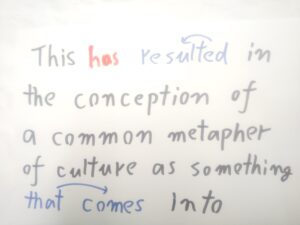 This has resulted in
the conception of
a common metapher
of culture as something
that comes Into